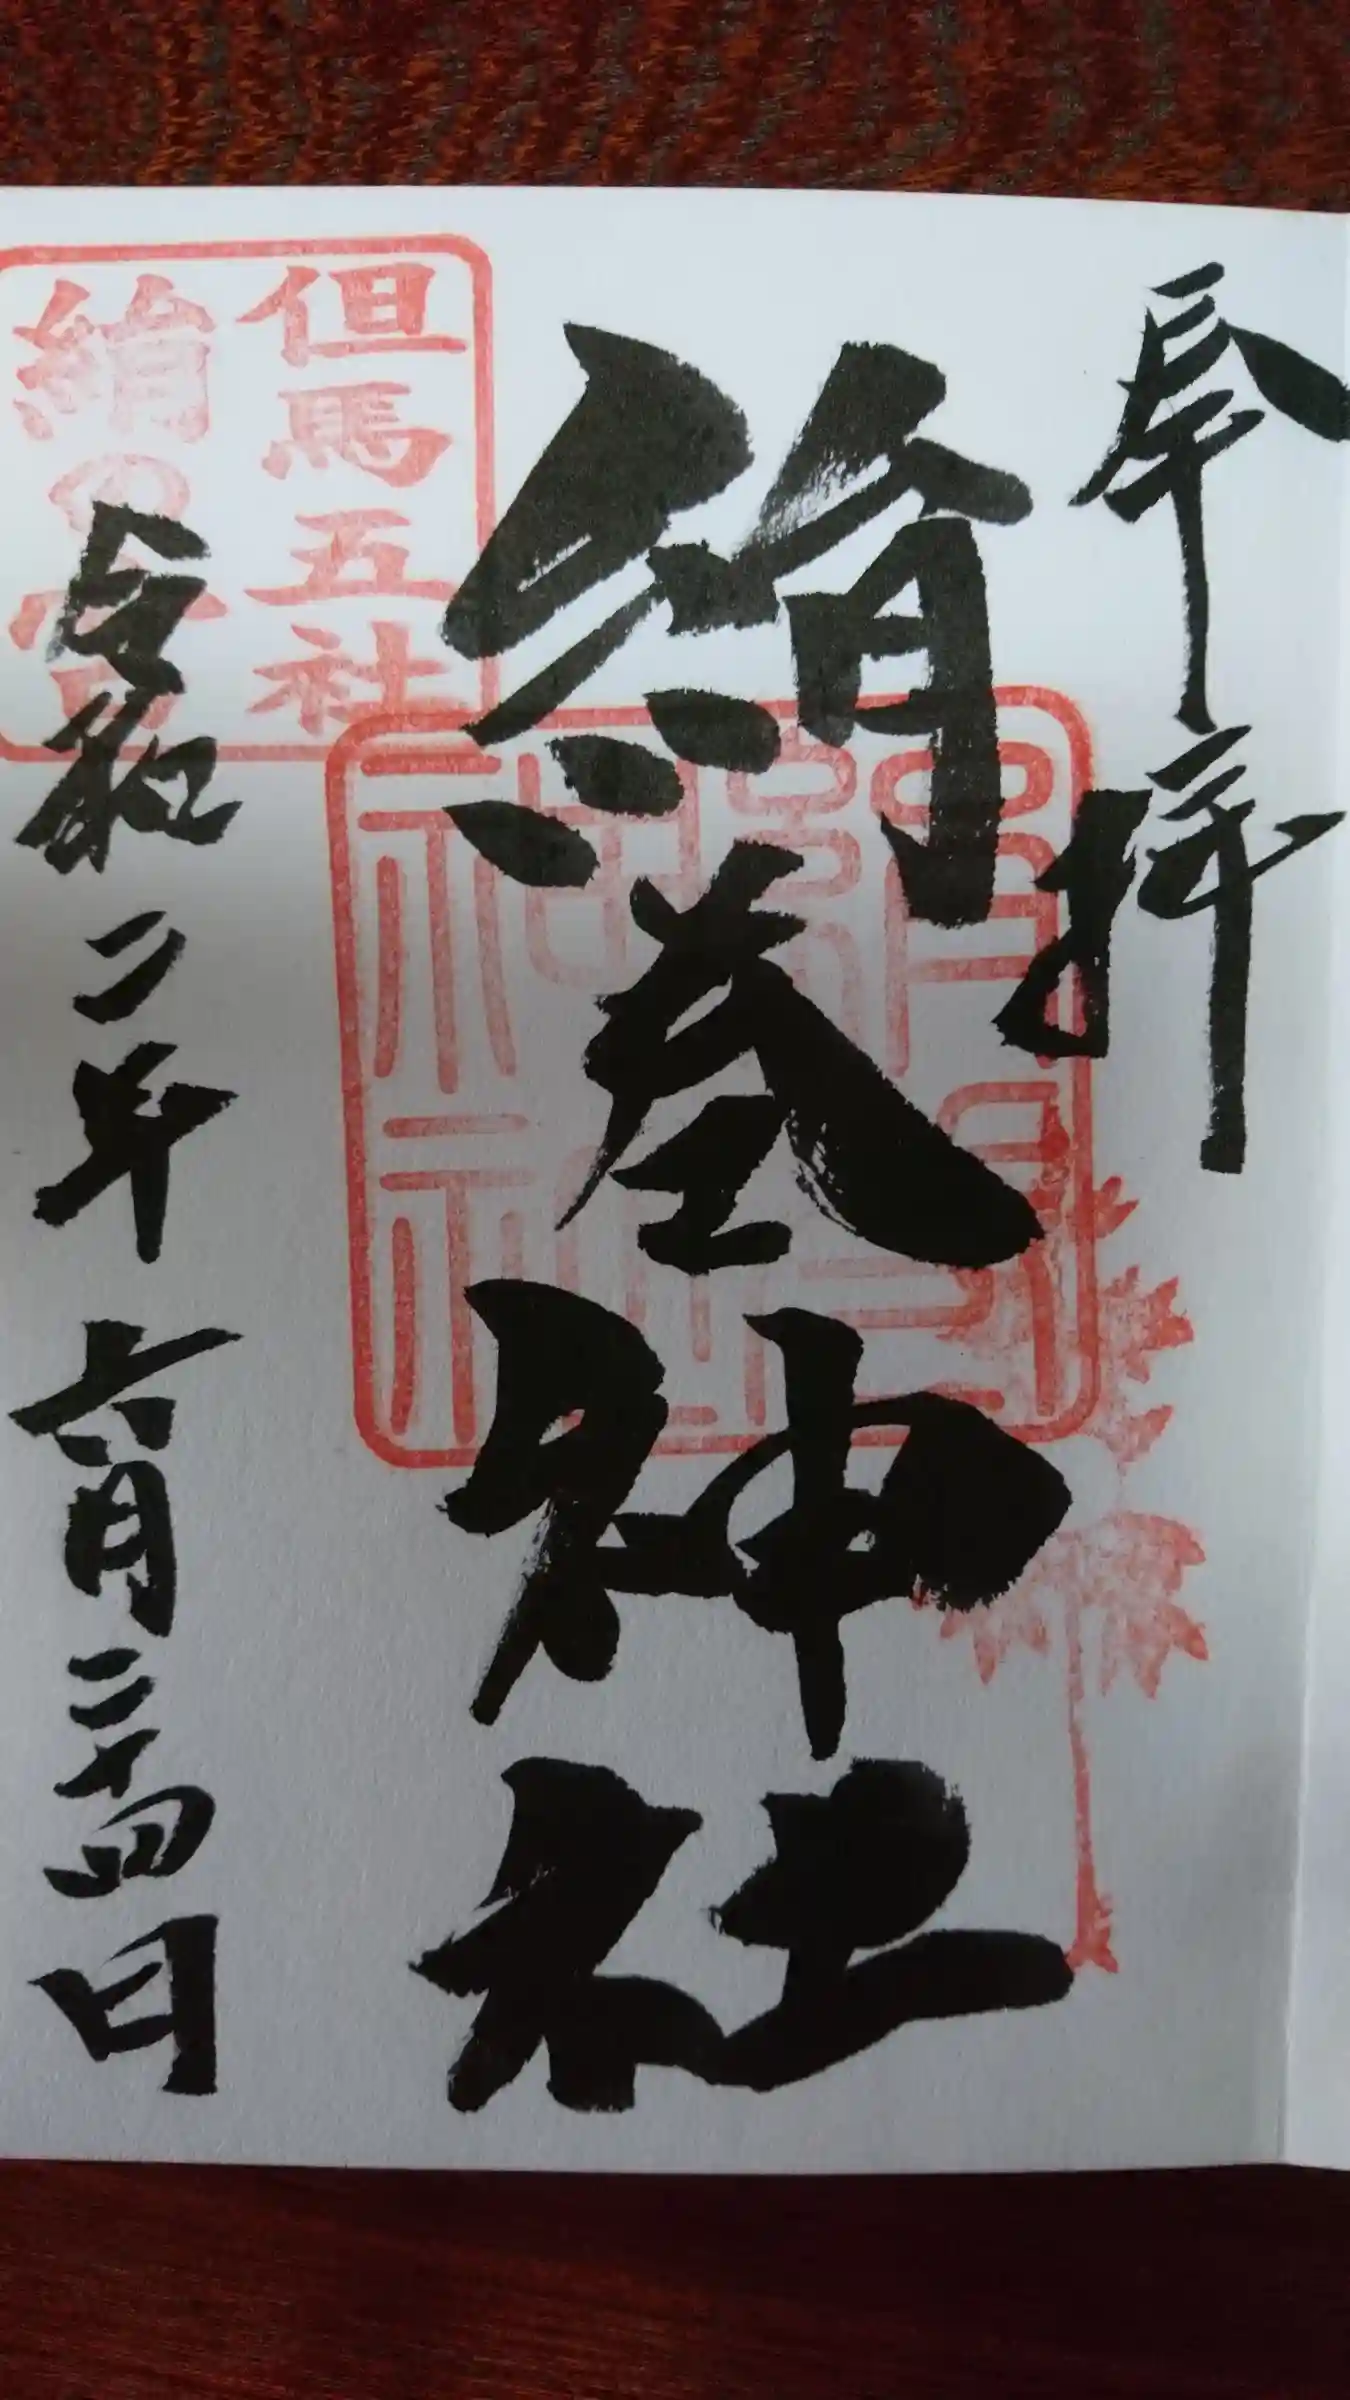 奉拝
絹巻神社
令和二年六月二十四日
但馬五社
絹の宮
絹巻
神社